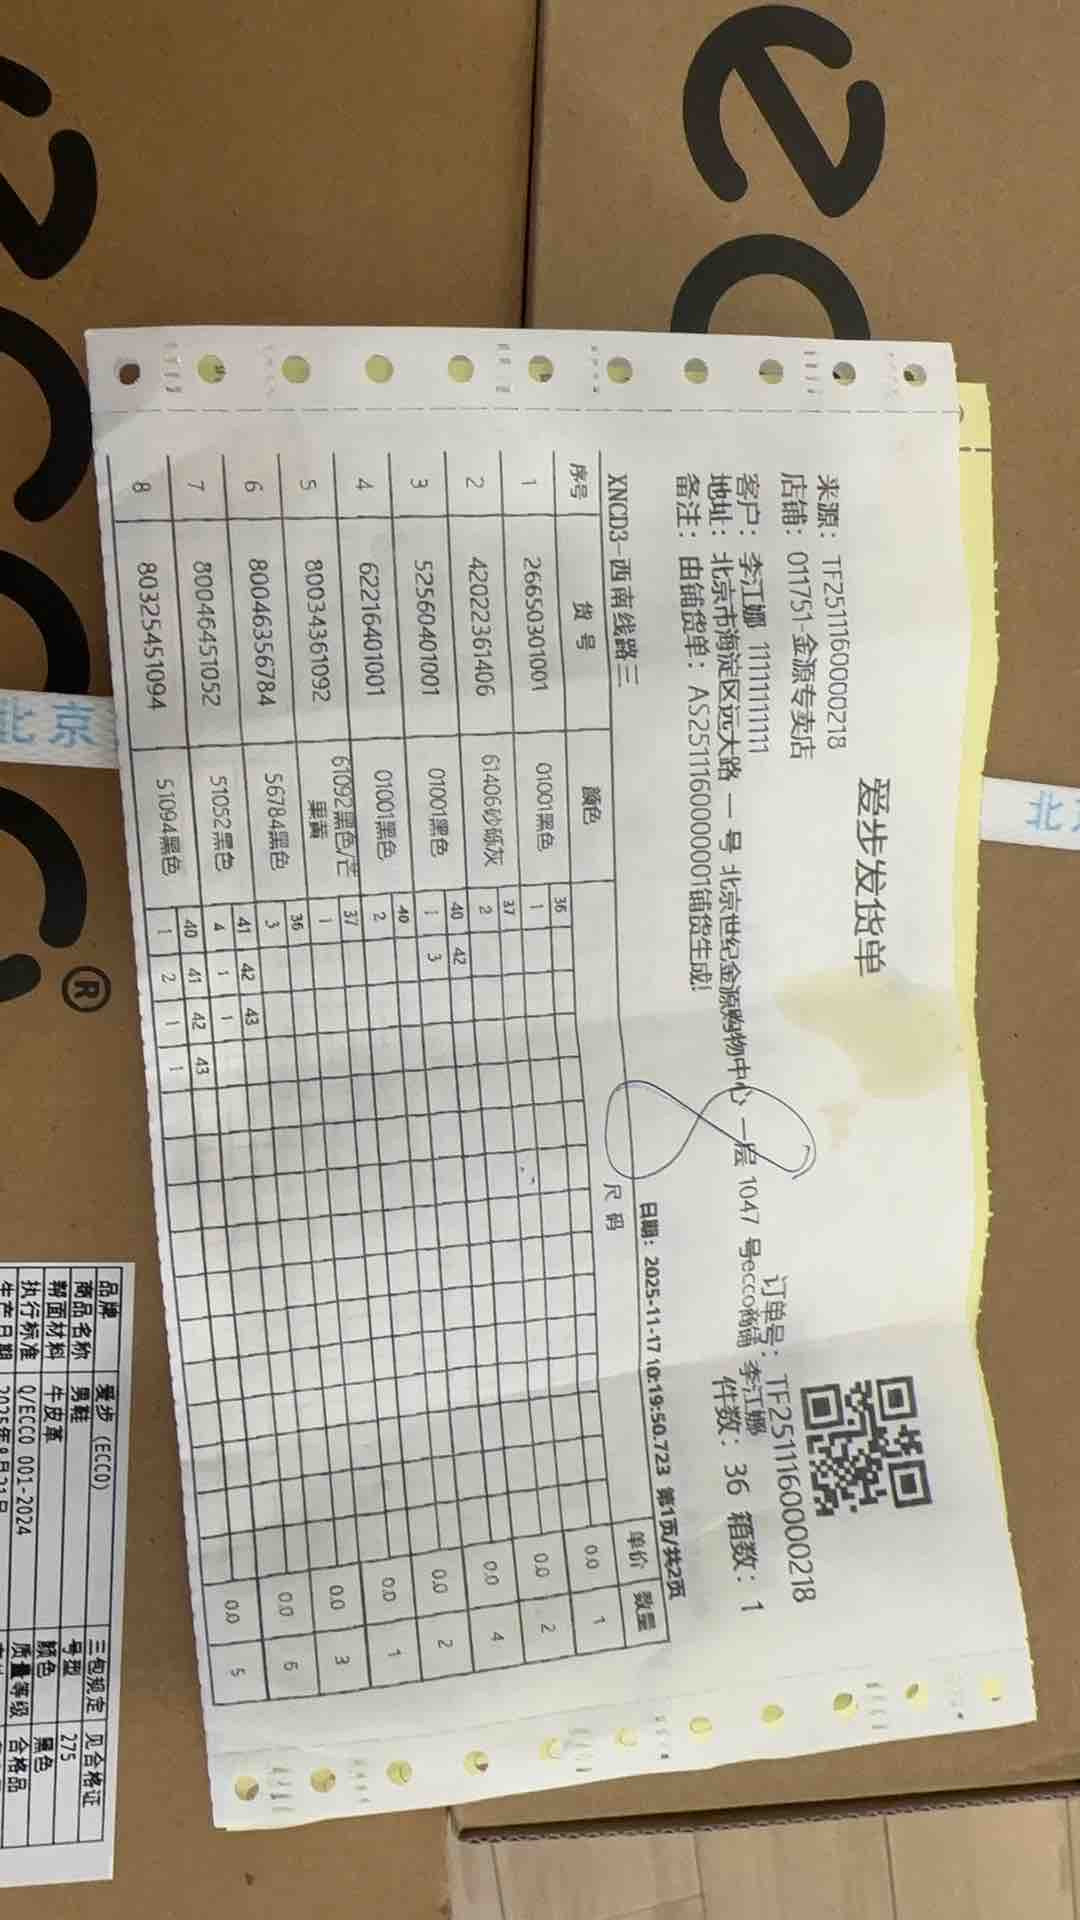 ecco
ecco®
北京
北京
爱步发货单
来源：TF2511160000218
订单号：TF2511160000218
店铺：011751-金源专卖店
件数：36 箱数：1
客户：李江娜 11111111111
地址：北京市海淀区远大路 一 号 北京世纪金源购物中心 一层 1047 号ecco商铺 李江娜
备注：由铺货单：AS2511160000001铺货生成!
8
XNCD3-西南线路三
日期：2025-11-17 10:19:50.723 第1页/共2页
序号 货号 颜色 尺码 单价 数量
36
1 26650301001 01001黑色 1 0.0 1
37
2 42022361406 61406砂砾灰 2 0.0 2
40 42
3 52560401001 01001黑色 1 3 0.0 4
40
4 62216401001 01001黑色 2 0.0 2
37
5 80034361092 61092黑色/芒果黄 1 0.0 1
36
6 80046356784 56784黑色 3 0.0 3
41 42 43
7 80046451052 51052黑色 4 1 1 0.0 6
40 41 42 43
8 80325451094 51094黑色 1 2 1 1 0.0 5
品牌 爱步 (ECCO) 三包规定 见合格证
商品名称 男鞋 号型 275
帮面材料 牛皮革 颜色 黑色
执行标准 Q/ECCO 001-2024 质量等级 合格品
生产日期 2025年8月21日